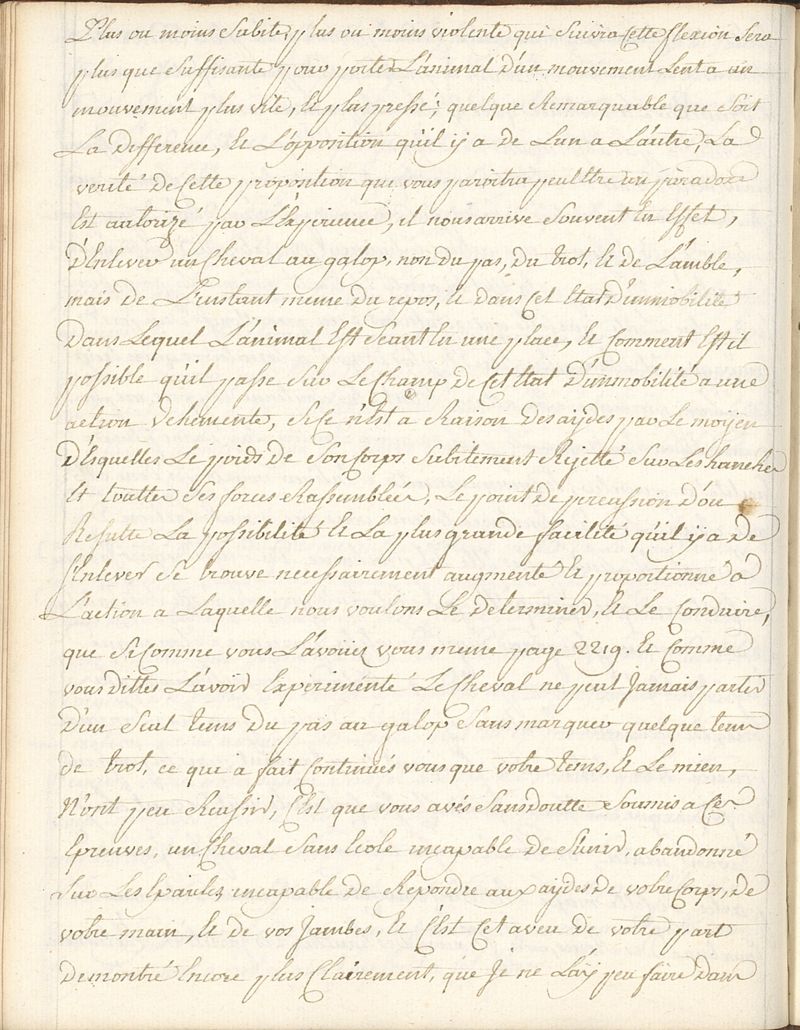 Plus ou moins subite, plus ou moins violente qui suivra Cette flexion sera
plus que suffisante pour porter L'animal d'un mouvement Lent a un
mouvement plus vite, Et plus pressé; quelque Remarquable que soit
La difference, Et L'opposition qu'il y a de Lun a L'autre, La
verité de Cette proposition qui vous paroitra peut Etre un paradoxe
Est autorizé par L'Experience, il nous arrive souvent En Effet,
d'Enlever un Cheval au galop, non du pas, du trot, Et de L'amble,
mais de L'instant meme du repos, Et dans Cet Etat d'immobilité
dans Lequel L'animal Est Seant En une place, Et Comment Est il
possible qu'il passe sur Le Champ de Cet Etat d'immobilité a une
action vehemente, si Ce n'Est a Raison des aydes par Le moyen
d'Esquelles Le poids de son Corps subitement Rejetté sur Les hanches
Et touttes ses forces Rassemblées, Le point de percussion d'ou
Resulte La possibilité Et La plus grande facilité qu'il y a de
s'Enlever se trouve necessairement augmenté Et proportionné a
L'action a Laquelle nous voulons Le determiner, Et Le Conduire,
que si Comme vous L'avoüez vous meme page 2219. Et Comme
vous dittes L'avoir Experimenté Le Cheval ne peut Jamais partir
d'un seul tems du pas au galop sans marquer quelque tems
de trot, ce qui a fait Continués vous que votre tems, Et Le mien,
N'ont peu Reussir, C'Est que vous avés sans doutte soumis a Ces
Epreuves, un Cheval sans Ecole incapable de s'unir, abandonné
sur Les Epaules incapable de Repondre aux aydes de votre Corps, de
votre main, Et de vos Jambes, Et C'Est Cet aveu de votre part
demontré Encore plus Clairement, que Je ne L'ay peu faire dans